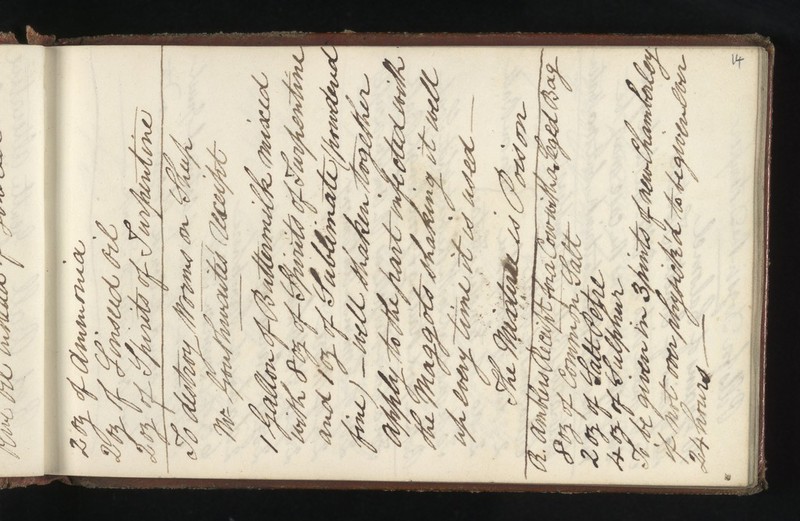 14
2 oz of Ammonia
2 oz of Linseed Oil
2 oz of Spirits of Turpentine
To destroy Worms on Sheep
Mr receipt
1 Gallon of Buttermilk mixed
with 8 oz of Spirits of Turpentine
and 1 oz of Sublimate (powdered
fine) – well shaken together
apply to the part infected with
the Maggots shaking it well
up every time it is used –
The is Poison
R. Receipt for a Cow with a Bag
8 oz of Common Salt
2 oz of Salt Petre
4 oz of Sulphur
To be given in 3 pints of new Chamberley
if not over physick'd to be given
24 hours –